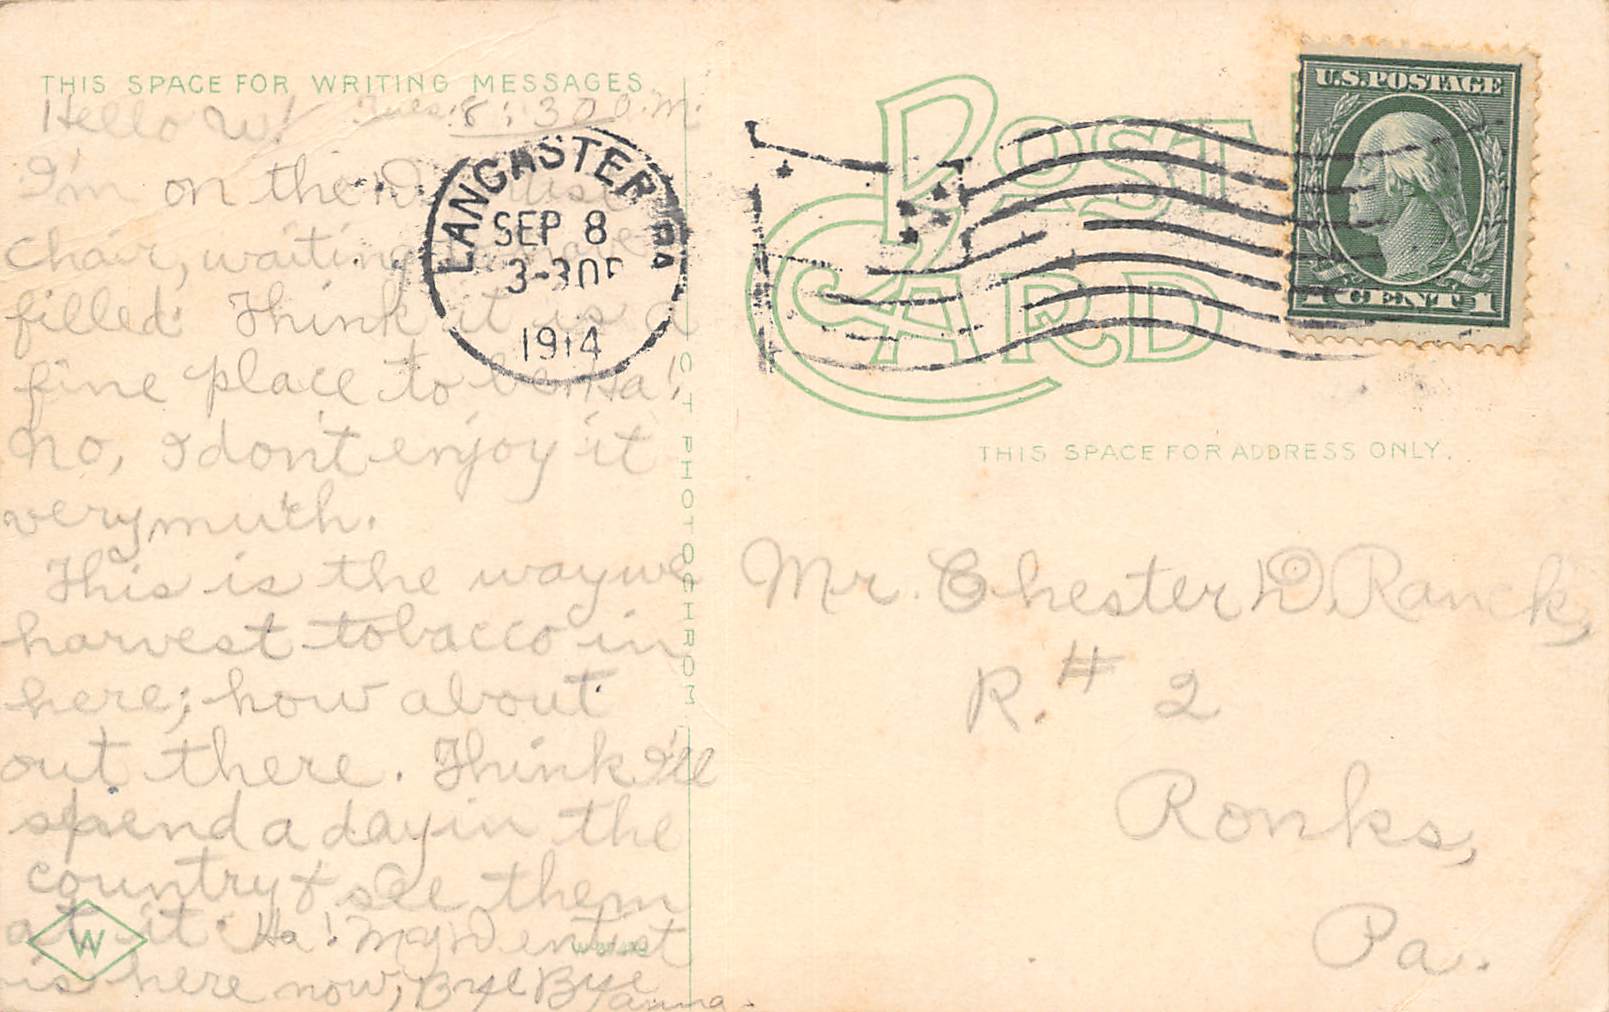 THIS SPACE FOR WRITING MESSAGES
Hello W! Tues. 8:30 a.m.
I'm on the Dentist
Chair, waiting
filled. Think it is a
fine place to be. Ha!
No, I don't enjoy it
very much.
This is the way we
harvest tobacco in
here; how about
out there. Think I'll
spend a day in the
country & see them
at it. Ha! My Dentist
is here now, Bye Bye
Anna.
W
OCTOPHOTOCHROM
LANCASTER PA
SEP 8
3-30P
1914
POST CARD
U.S. POSTAGE
1 CENT 1
THIS SPACE FOR ADDRESS ONLY.
Mr. Chester D. Ranck,
R. # 2
Ronks,
Pa.